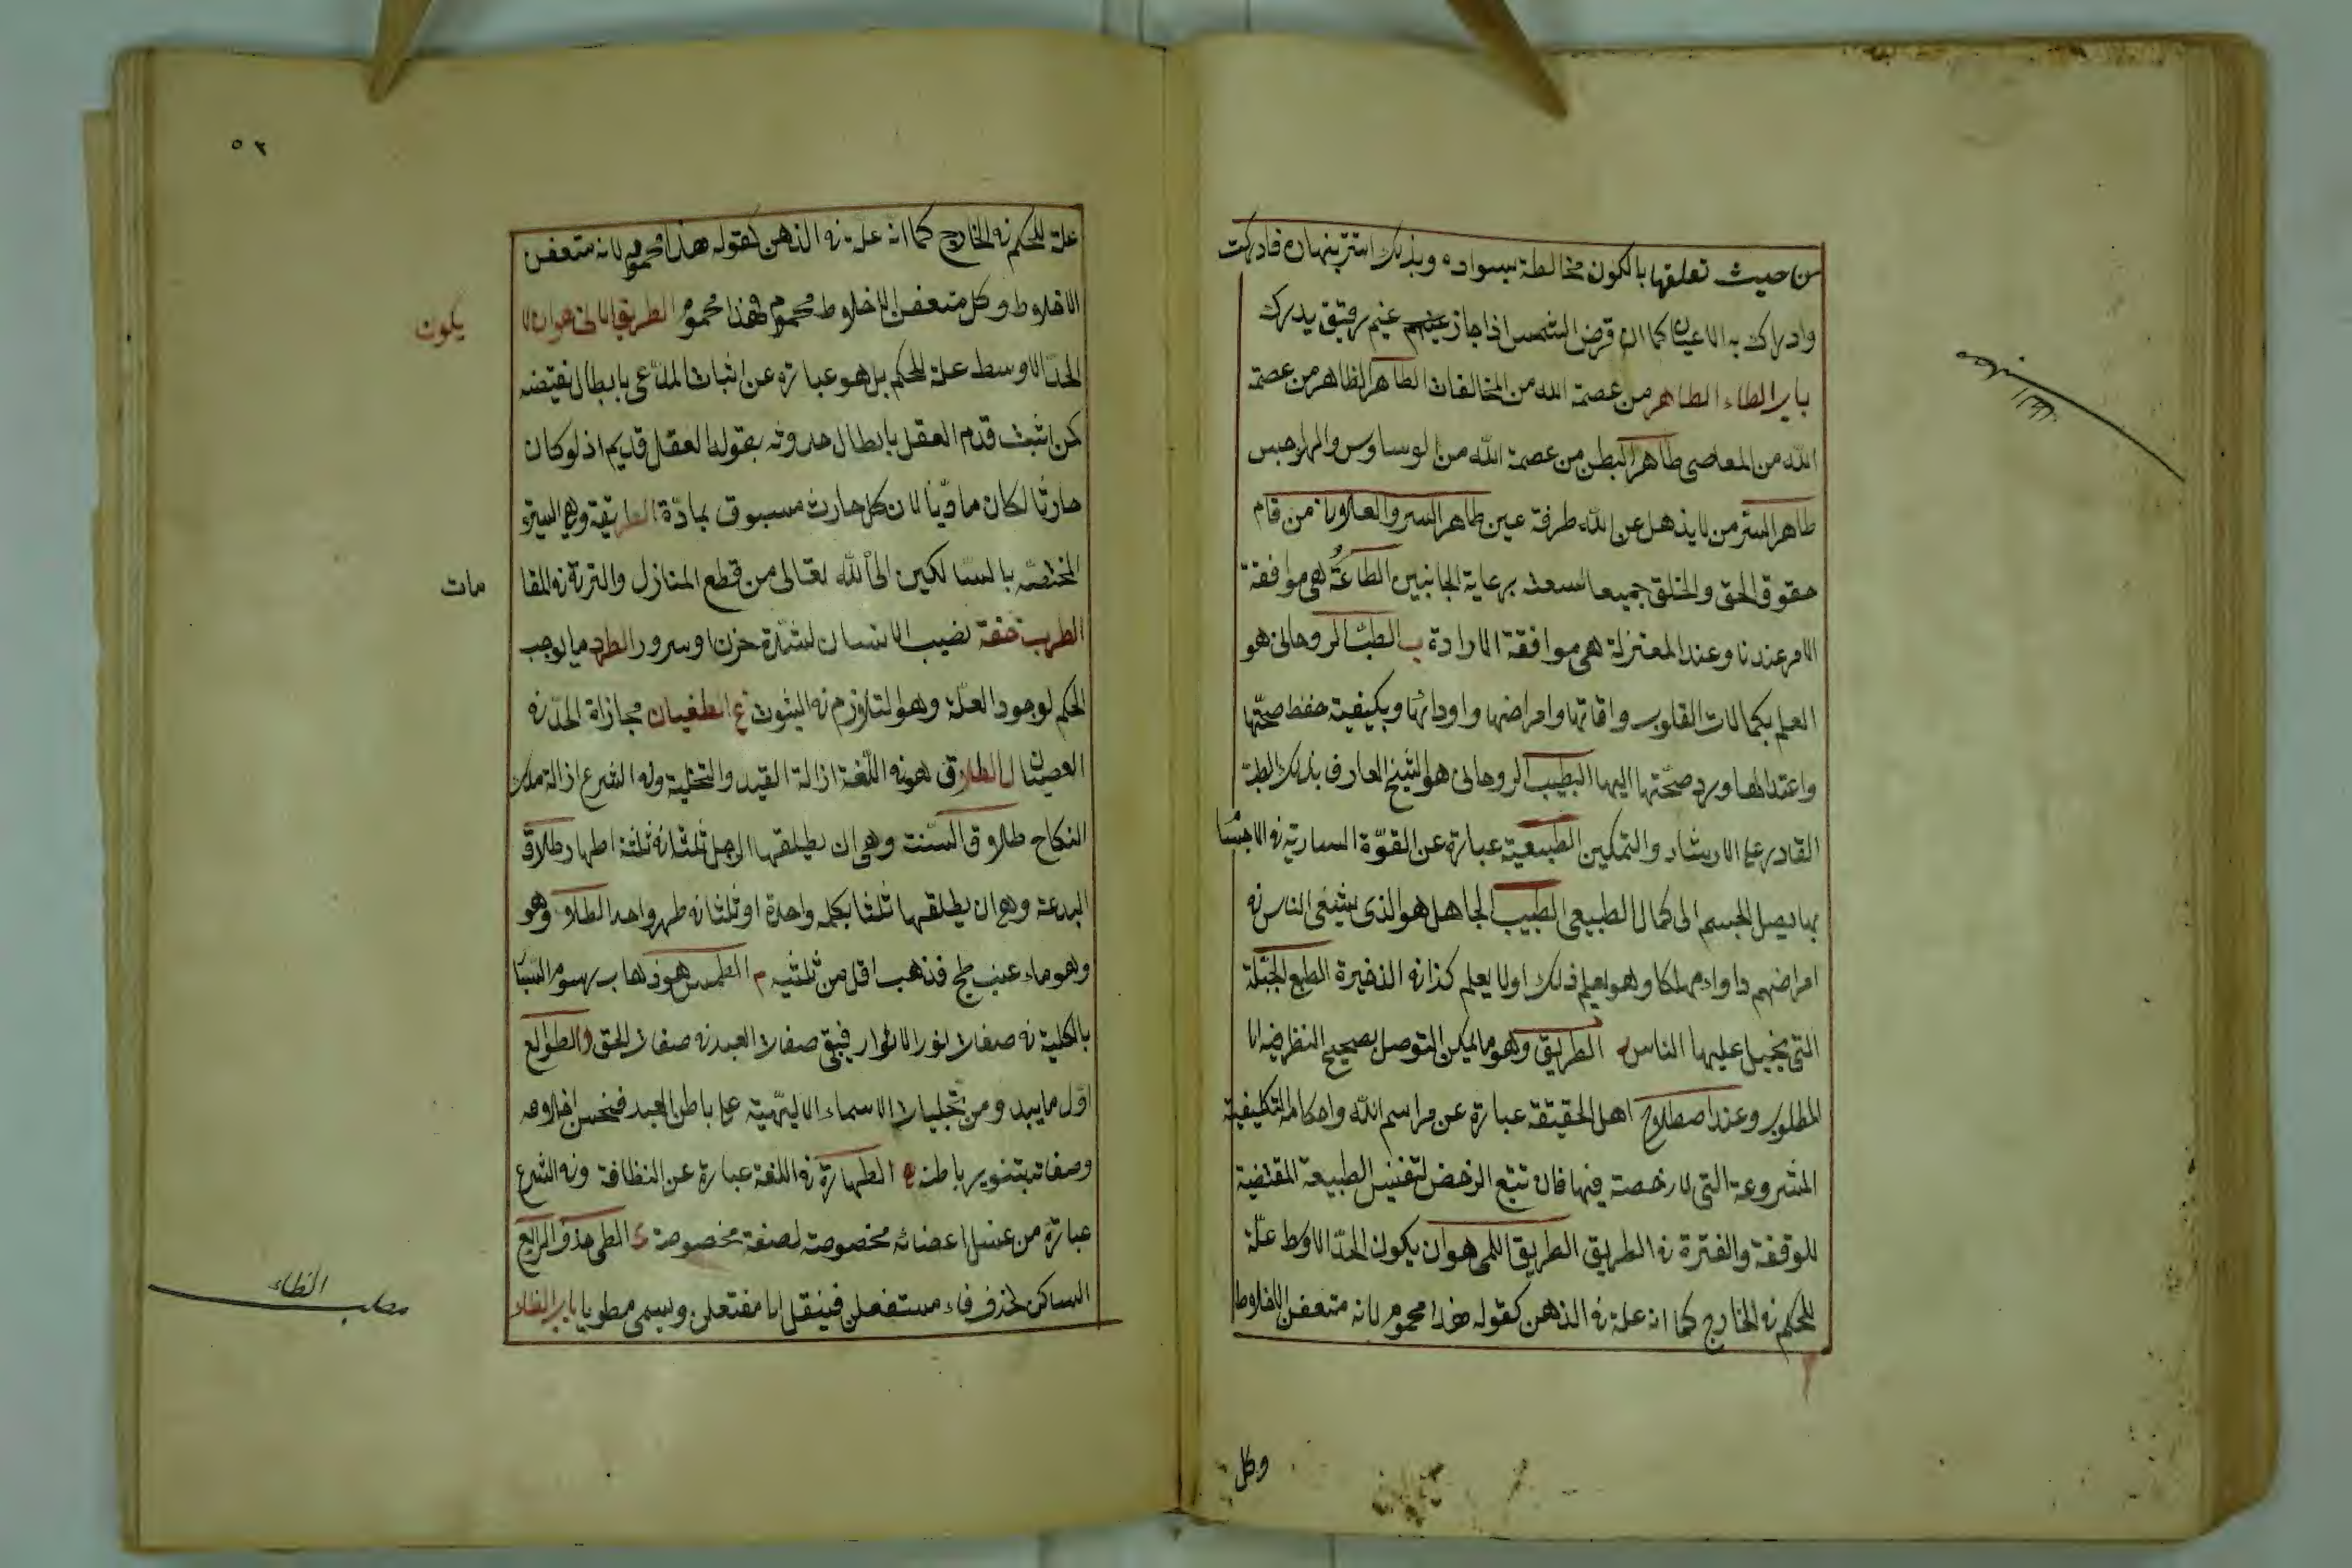 من حيث تعلقها بالكون مخالطة بسواده وبذلك استتر بنهاره فادركت
وادراك به الاعيان كما ان قرص الشمس اذا جاز غيم رقيق يدرك
باب الطاء الطاهر من عصمة الله من المخالفات الطاهر الظاهر من عصمة
الله من المعاصى طاهر الباطن من عصمة الله من الوساوس والهواجس
طاهر السر من لا يذهل عن الله طرفة عين طاهر السر والعلانية من قام
حقوق الحق والخلق جميعا لسعته برعاية الجانبين الطاعة هى موافقة
الامر عندنا وعند المعتزلة هى موافقة الارادة ب الطب الروحانى هو
العلم بكمالات القلوب وافاتها وامراضها وادوائها وبكيفية حفظ صحتها
واعتدالها ورد صحتها اليها الطبيب الروحانى هو الشيخ العارف بذلك الطب
القادر على الارشاد والتمكين الطبيعية عبارة عن القوة السارية فى الاجسا
بها يصل الجسم الى كمال الطبيعى الطبيب الجاهل هو الذى يشفى الناس فى
امراضهم داواء مهلكا وهو يعلم ذلك اولا يعلم كذا فى الذخيرة الطبع الجبلة
التى يجبل عليها الناس الطريق وهو ما يمكن التوصل بصحيح النظر فيه الى
المطلوب وعند اصطلاح اهل الحقيقة عبارة عن مراسم الله واحكامه التكليفية
المشروعة التى لا رخصة فيها فان تتبع الرخص لتنفيس الطبيعة المقتضية
للوقفة والفترة فى الطريق الطريق اللمى هو ان يكون الحد الاوسط علة
للحكم فى الخارج كما انه علة فى الذهن كقوله هذا محموم لانه متعفن الاخلاط
وكل
٥٢
علة للحكم فى الخارج كما انه علة فى الذهن كقوله هذا محموم لانه متعفن
الاخلاط وكل متعفن الاخلاط محموم فهذا محموم الطريق الانى هو ان لا
يكون
الحد الاوسط علة للحكم بل هو عبارة عن اثبات المدعى بابطال نقيضه
كمن اثبت قدم العقل بابطال حدوثه بقوله العقل قديم اذ لو كان
حادثا لكان ماديا لان كل حادث مسبوق بمادة الطريقة وهى السيرة
المختصة بالسالكين الى الله تعالى من قطع المنازل والترقى فى المقا
مات
الطرب خفة تصيب الانسان لشدة حزن او سرور الطرد ما يوجب
الحكم لوجود العلة وهو التلازم فى الثبوت غ الطغيان مجازاة الحد فى
العصيان ل الطلاق هو فى اللغة ازالة القيد والتخلية وفى الشرع ازالة ملك
النكاح طلاق السنت وهى ان يطلقها الرجل ثلثا فى ثلثة اطهار طلاق
البدعة وهى ان يطلقها ثلثا بكلمة واحدة او ثلثا فى طهر واحد الطلاء وهو
وهو ماء عنب طبخ فذهب اقل من ثلثيه م الطمس هو ذهاب رسوم السيا
بالكلية فى صفات نور الانوار فيبقى صفات العبد فى صفات الحق و الطوالع
اول ما يبدو من تجليات الاسماء الالهية على باطن العبد فيحسن اخلاقه
وصفاته بتنوير باطنه ه الطهارة فى اللغة عبارة عن النظافة وفى الشرع
عبارة من غسل اعضائه مخصوصة لصفة مخصوصة ى الطى حذف الرابع
الساكن كحذف فاء مستفعلن فينقل الى مفتعلن ويسمى مطويا باب الظاء
مطلب الظاء